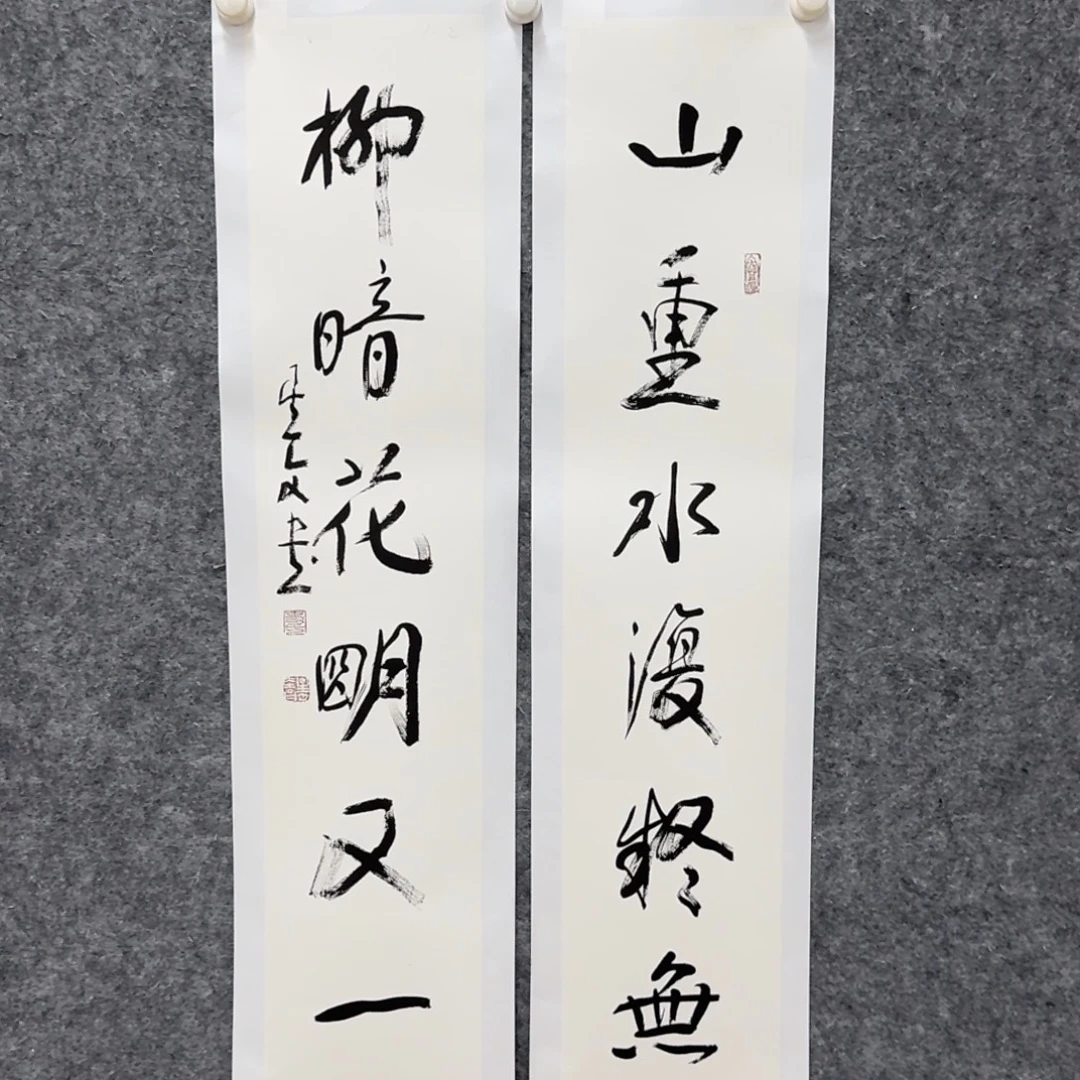 山重水復疑無
柳暗花明又一